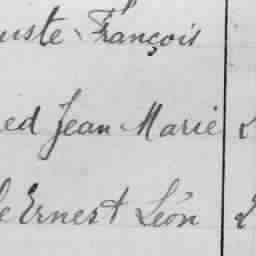 uste François
ed Jean Marie
e Ernest Léon